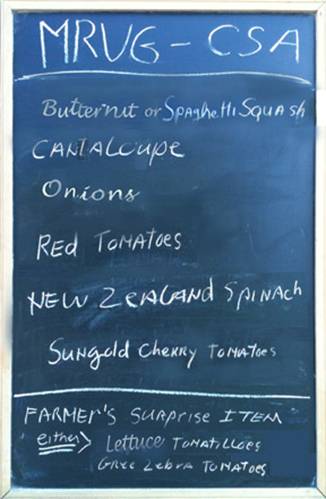 MRUG - CSA
Butternut or Spaghetti Squash
Cantaloupe
Onions
Red Tomatoes
New Zealand Spinach
Sungold Cherry Tomatoes
Farmer's Surprise Item
either> Lettuce Tomatilloes
Gree Zebra Tomatoes